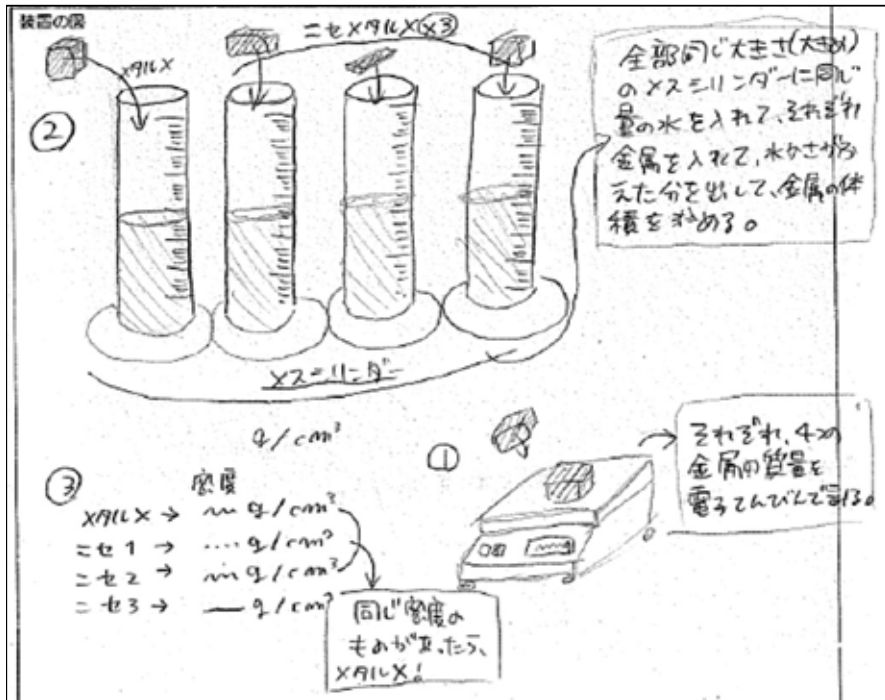 装置の図
メタルX
ニセメタルX×3
②
全部同じ大きさ(大きめ)
のメスシリンダーに同じ
量の水を入れて、それぞれ
金属を入れて、水かさがふ
えた分を出して、金属の体
積を求める。
メスシリンダー
g/cm³
①
それぞれ、4つの
金属の質量を
電子てんびんで量る。
③
密度
メタルX→ g/cm³
ニセ1→ .... g/cm³
ニセ2→ g/cm³
ニセ3→ g/cm³
同じ密度の
ものがあったら、
メタルX!